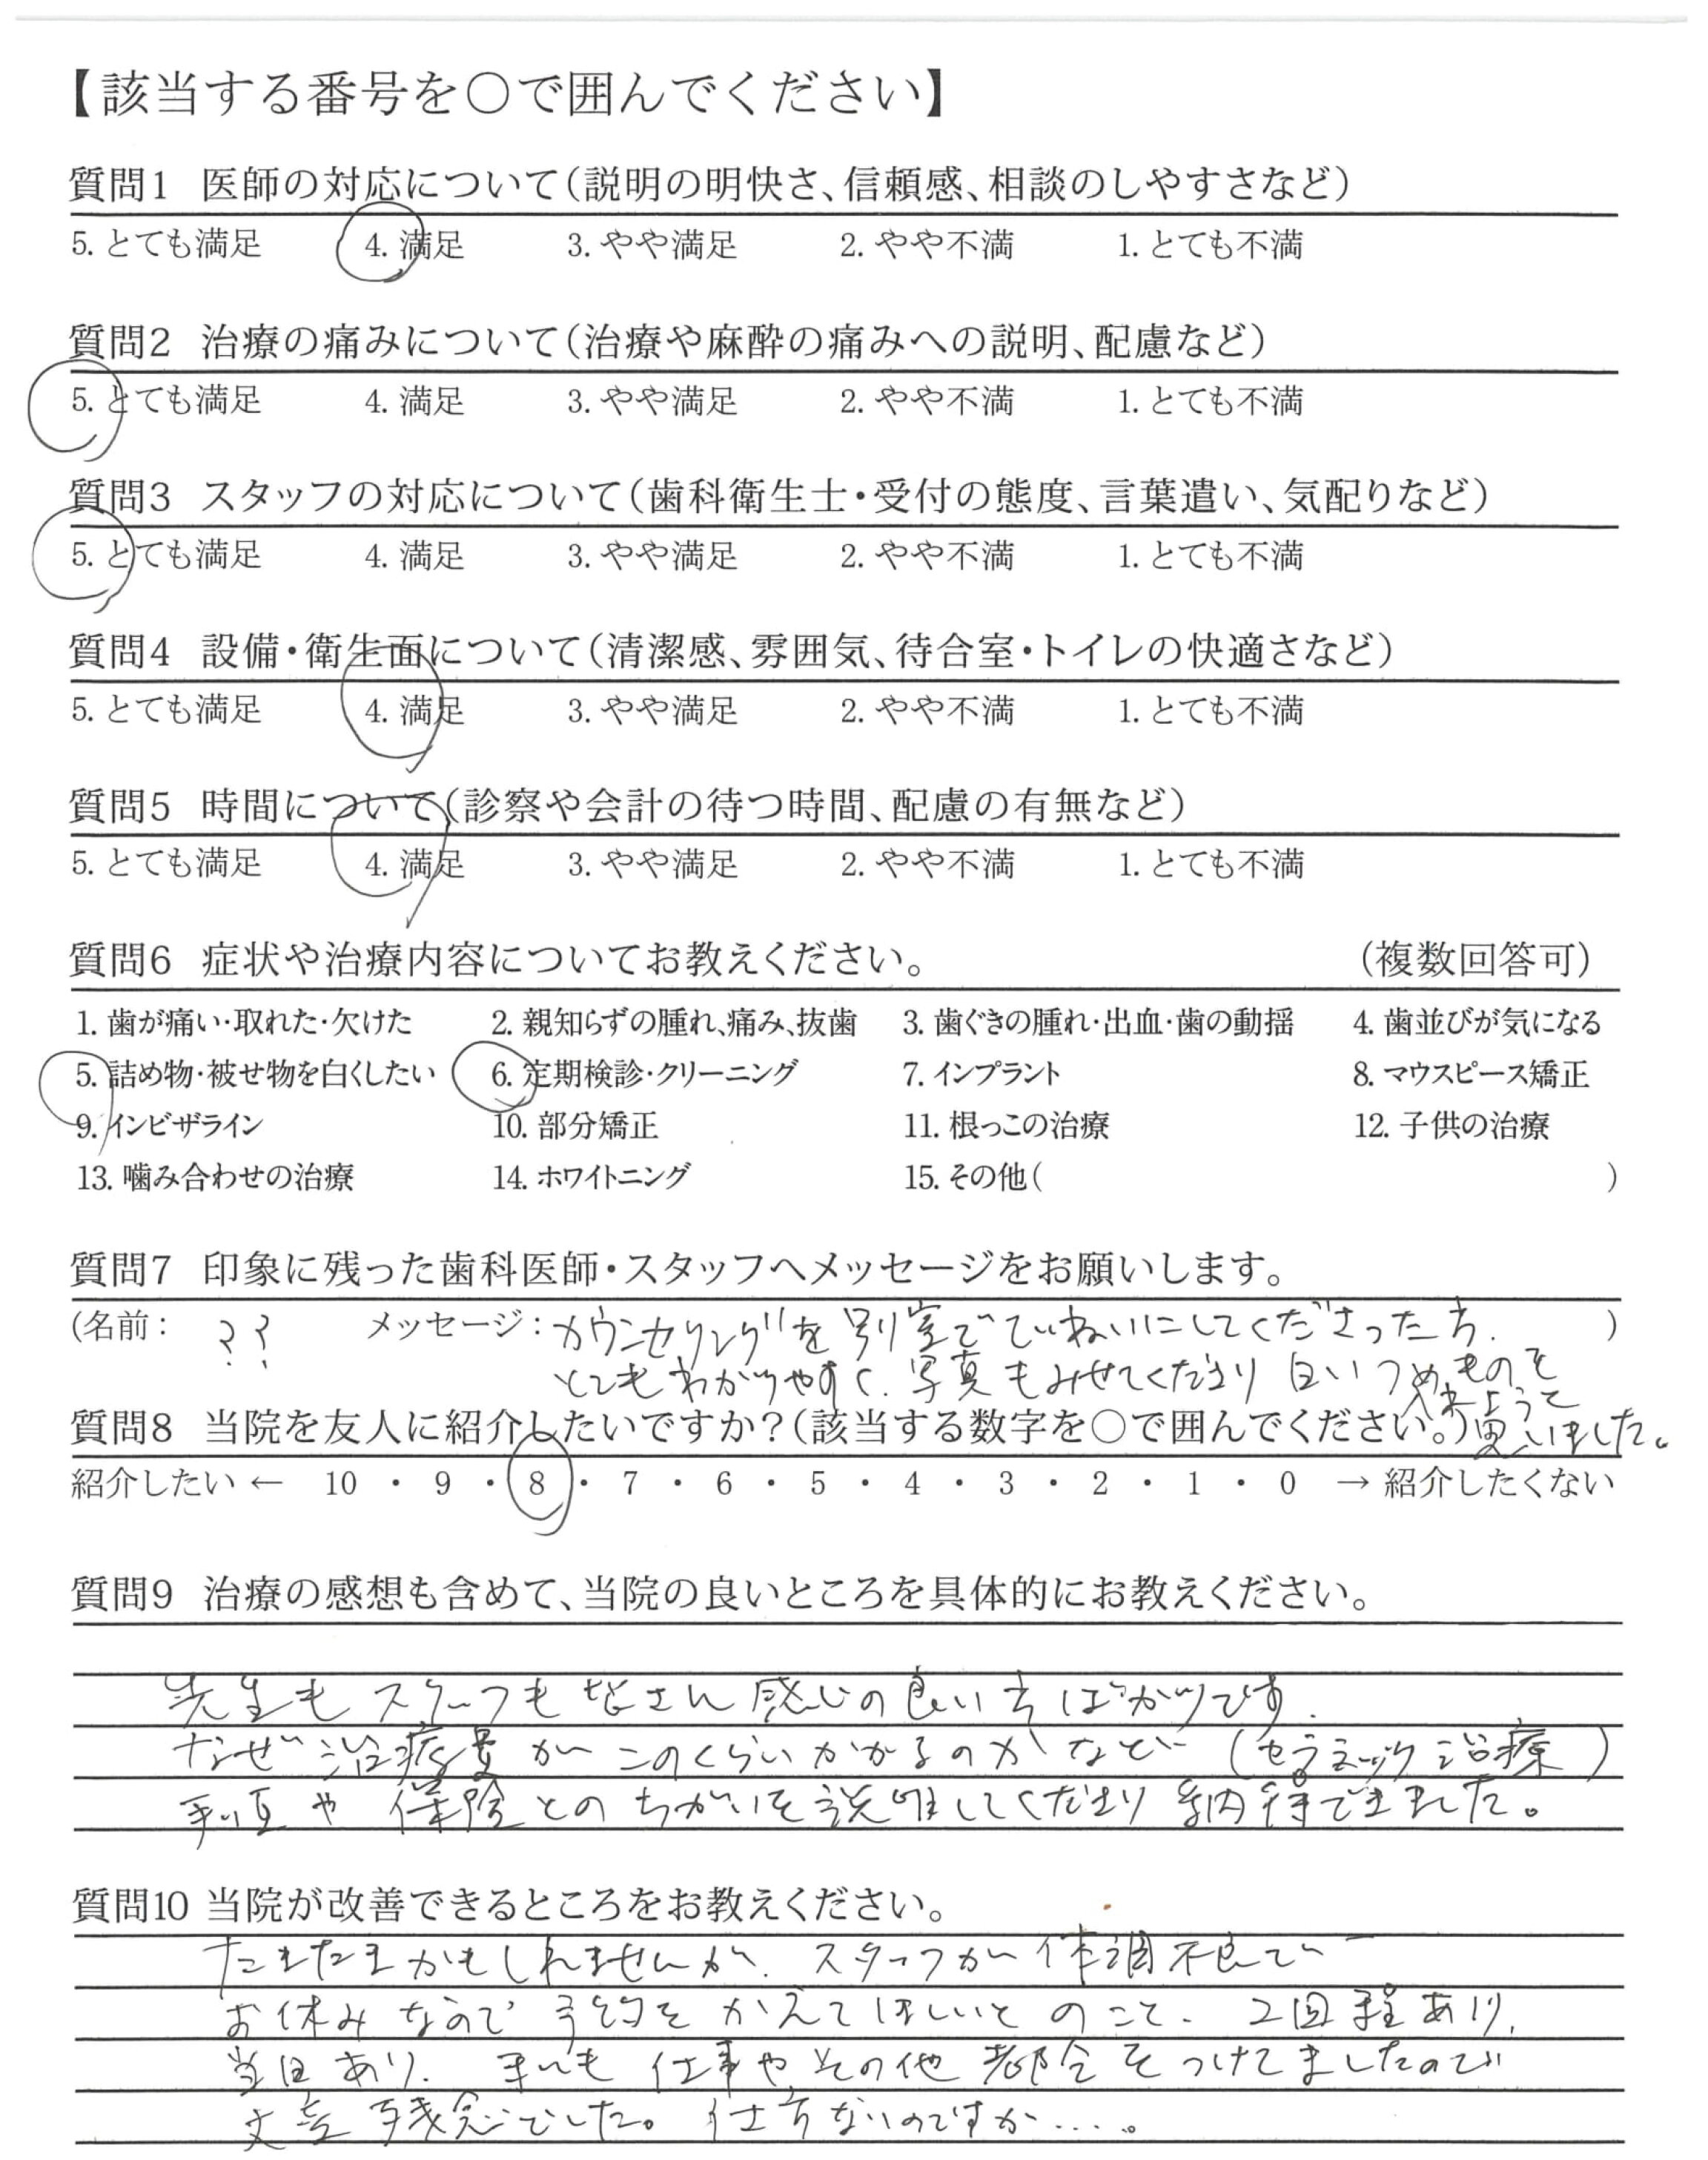 【該当する番号を○で囲んでください】
質問1 医師の対応について(説明の明快さ、信頼感、相談のしやすさなど)
5. とても満足 4. 満足 3. やや満足 2. やや不満 1. とても不満
質問2 治療の痛みについて(治療や麻酔の痛みへの説明、配慮など)
5. とても満足 4. 満足 3. やや満足 2. やや不満 1. とても不満
質問3 スタッフの対応について(歯科衛生士・受付の態度、言葉遣い、気配りなど)
5. とても満足 4. 満足 3. やや満足 2. やや不満 1. とても不満
質問4 設備・衛生面について(清潔感、雰囲気、待合室・トイレの快適さなど)
5. とても満足 4. 満足 3. やや満足 2. やや不満 1. とても不満
質問5 時間について(診察や会計の待つ時間、配慮の有無など)
5. とても満足 4. 満足 3. やや満足 2. やや不満 1. とても不満
質問6 症状や治療内容についてお教えください。 (複数回答可)
1. 歯が痛い・取れた・欠けた 2. 親知らずの腫れ、痛み、抜歯 3. 歯ぐきの腫れ・出血・歯の動揺 4. 歯並びが気になる
5. 詰め物・被せ物を白くしたい 6. 定期検診・クリーニング 7. インプラント 8. マウスピース矯正
9. インビザライン 10. 部分矯正 11. 根っこの治療 12. 子供の治療
13. 噛み合わせの治療 14. ホワイトニング 15. その他( )
質問7 印象に残った歯科医師・スタッフへメッセージをお願いします。
(名前: ?? メッセージ: カウンセリングを別室でていねいにしてくださった方. )
とてもわかりやすく、写真もみせてくださり 白いつめものを
入れようと
思いました。
質問8 当院を友人に紹介したいですか?(該当する数字を○で囲んでください。)
紹介したい ← 10 ・ 9 ・ 8 ・ 7 ・ 6 ・ 5 ・ 4 ・ 3 ・ 2 ・ 1 ・ 0 → 紹介したくない
質問9 治療の感想も含めて、当院の良いところを具体的にお教えください。
先生もスタッフも皆さん感じの良い方ばかりです.
なぜ治療費がこのくらいかかるのかなど (セラミック治療)
や 保険とのちがいを説明してくださり 納得できました。
質問10 当院が改善できるところをお教えください。
たまたまかもしれませんが、スタッフが体調不良で
お休みなので 予約をかえてほしいとのこと、2回程あり、
当日あり. 仕事やその他都合をつけてましたので
大変残念でした。仕方ないのですが.....。